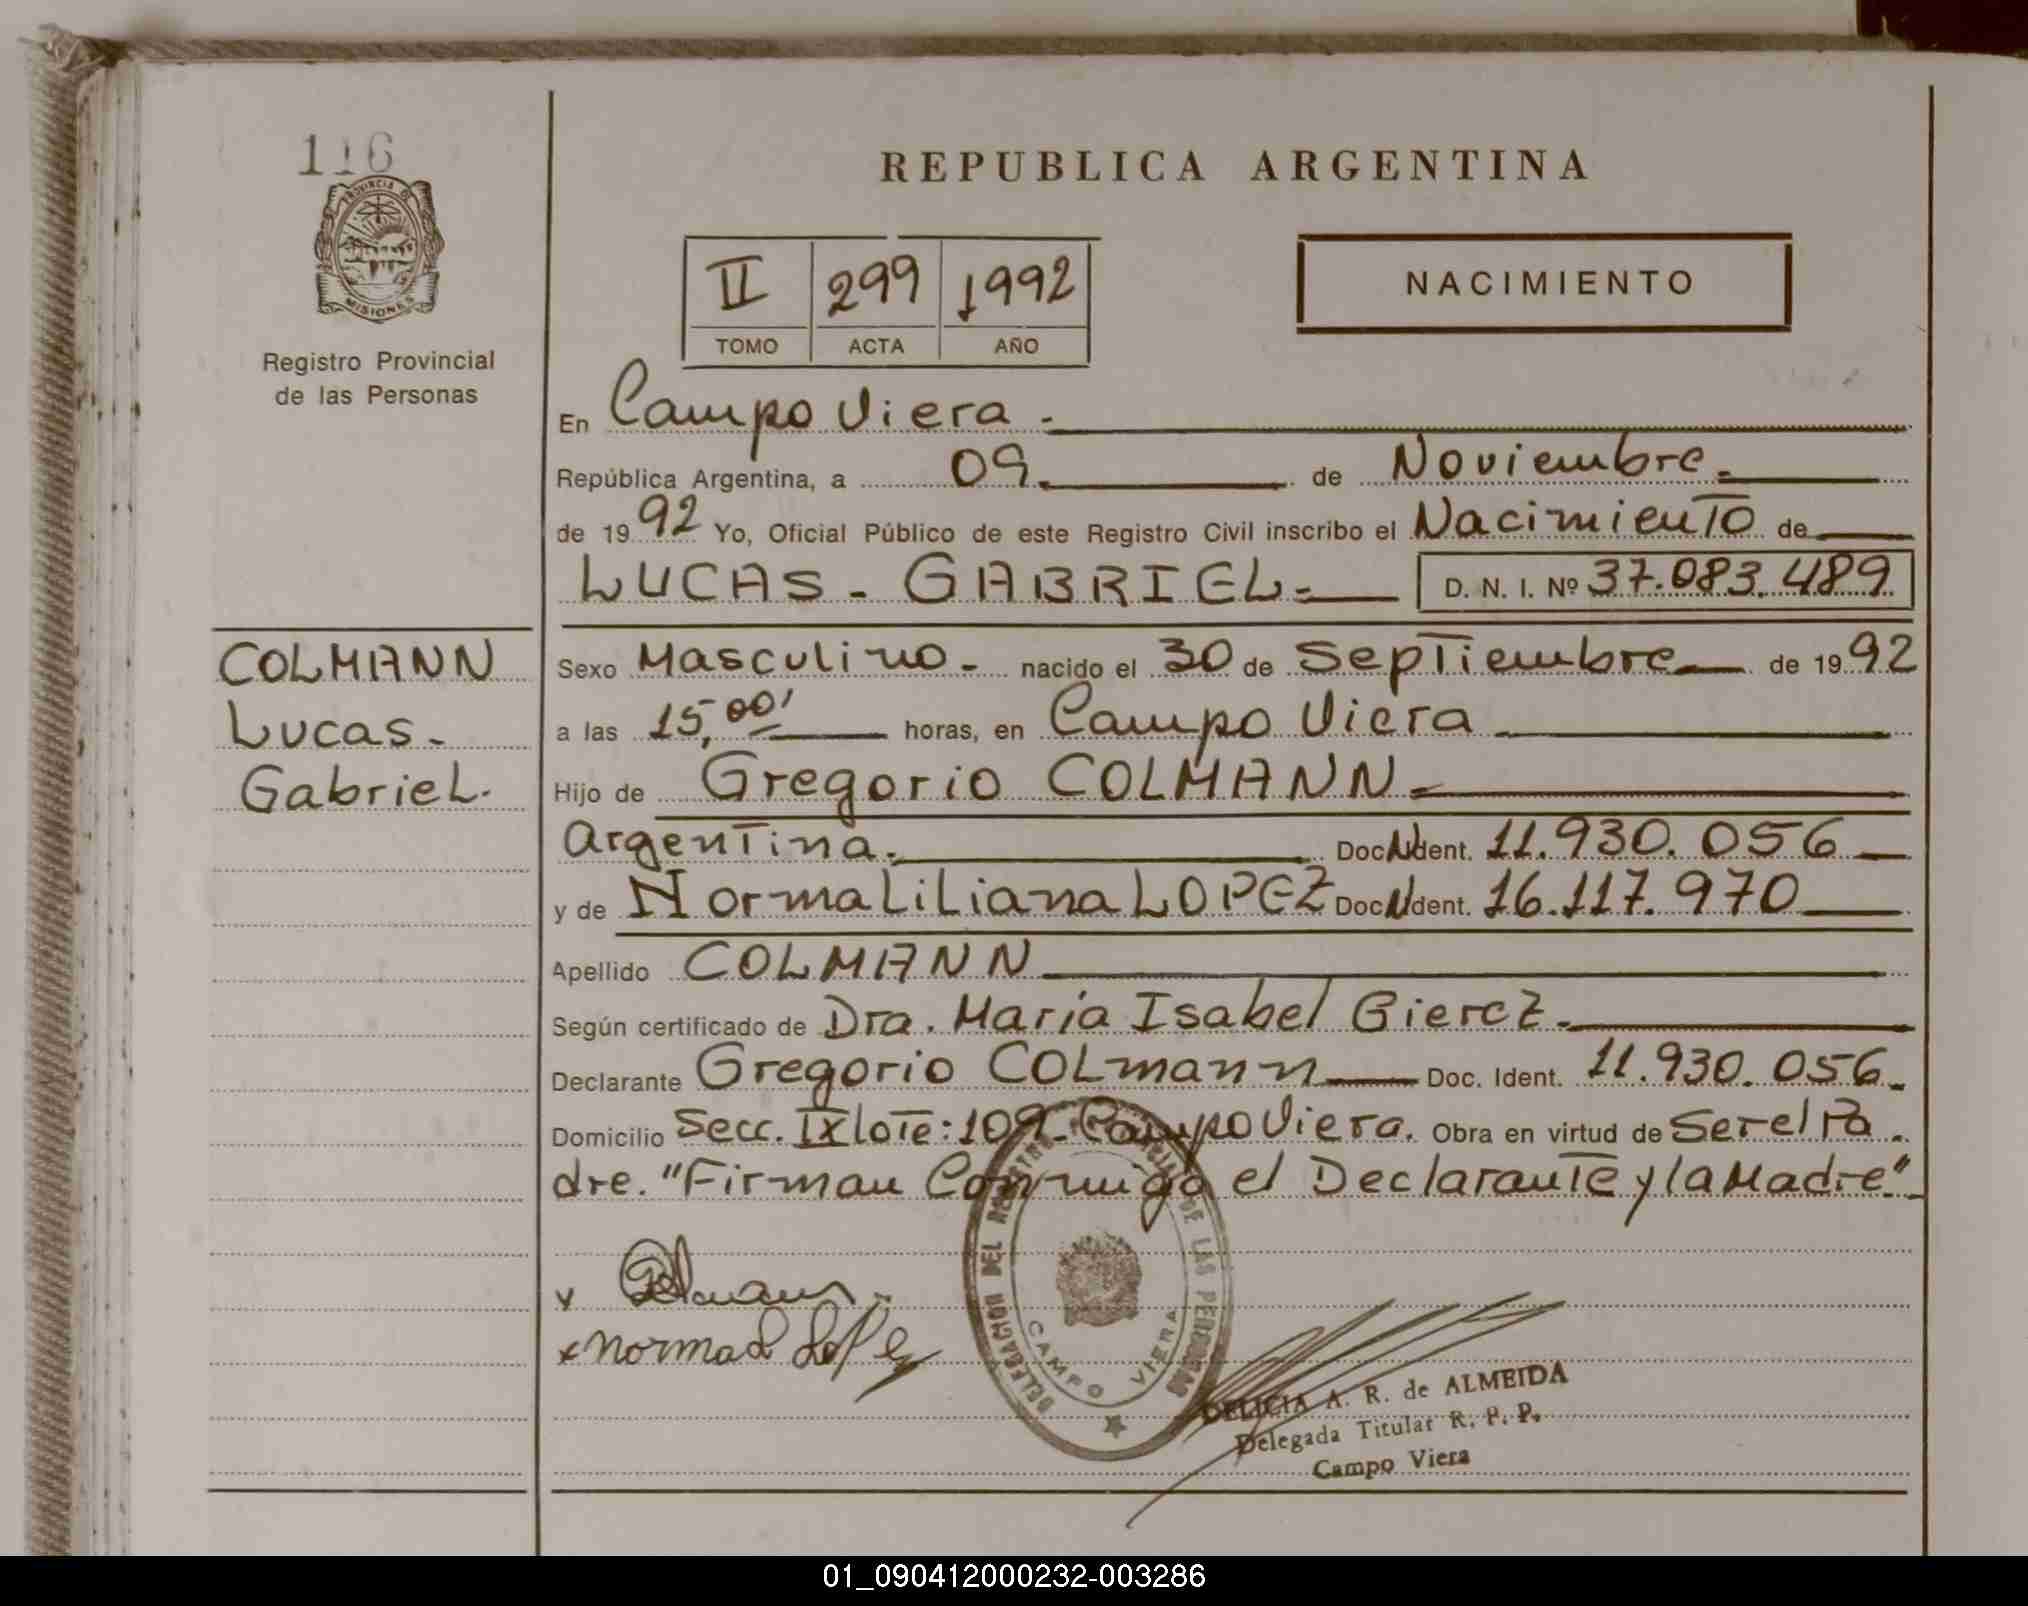 116
PROVINCIA DE
MISIONES
Registro Provincial
de las Personas
COLMANN
Lucas-
Gabriel.
REPUBLICA ARGENTINA
II 299 1992
TOMO ACTA AÑO
NACIMIENTO
En Campo Viera-
República Argentina, a 09 de Noviembre-
de 19 92 Yo, Oficial Público de este Registro Civil inscribo el Nacimiento de
LUCAS - GABRIEL- D. N. I. Nº 37.083.489
Sexo Masculino- nacido el 30 de Septiembre de 19 92
a las 15,00' horas, en Campo Viera
Hijo de Gregorio COLMANN
Argentina. Doc. N Ident. 11.930.056
y de Norma Liliana LOPEZ Doc. N Ident. 16.117.970
Apellido COLMANN
Según certificado de Dra. María Isabel Gierez-
Declarante Gregorio COLmann Doc. Ident. 11.930.056-
Domicilio Secc. IX lote: 109- Campo Viera. Obra en virtud de Ser el Pa-
dre. "Firman Conmigo el Declarante y la Madre"-
x norma L Lopez
DELEGACION DEL REGISTRO PROVINCIAL DE LAS PERSONAS
CAMPO VIERA
DELICIA A. R. de ALMEIDA
Delegada Titular R. P. P.
Campo Viera
01_090412000232-003286